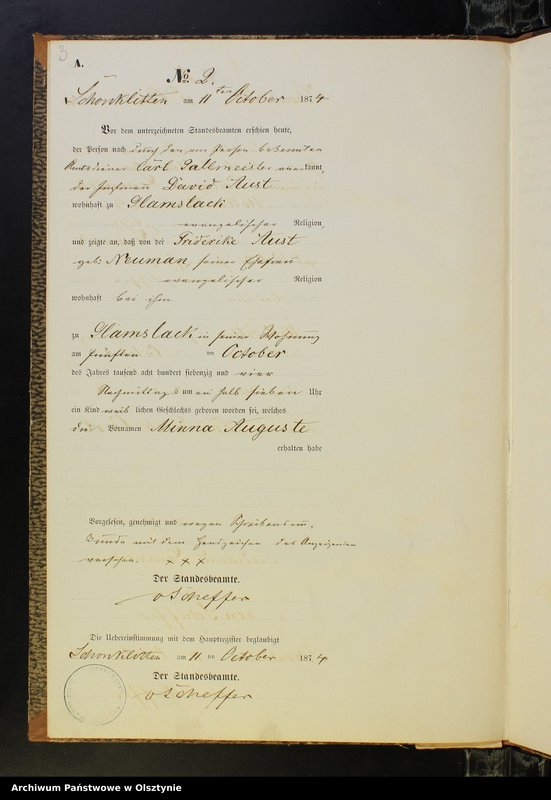 3
A.
No. 2.
Schönklitten am 11ten October 1874
Vor dem unterzeichneten Standesbeamten erschien heute,
der Person nach durch den von Person bekannten
Carl Gallmeister anerkannt,
der David Aust
wohnhaft zu Plamslack
evangelischer Religion,
und zeigte an, daß von der Friderike Aust
geb: Neuman, seiner Ehefrau
evangelischer Religion
wohnhaft bei ihm
zu Plamslack in seiner Wohnung
am fünften ten October
des Jahres tausend acht hundert siebenzig und vier
Nachmittags um ein halb sieben Uhr
ein Kind weiblichen Geschlechts geboren worden sei, welches
die Vornamen Minna Auguste
erhalten habe
Vorgelesen, genehmigt und wegen Schreibensun=
kunde mit dem Handzeichen des Anzeigenden
versehen. x x x
Der Standesbeamte.
v Scheffer
Die Uebereinstimmung mit dem Hauptregister beglaubigt
Schönklitten am 11 ten October 1874
Der Standesbeamte.
v Scheffer
Archiwum Państwowe w Olsztynie